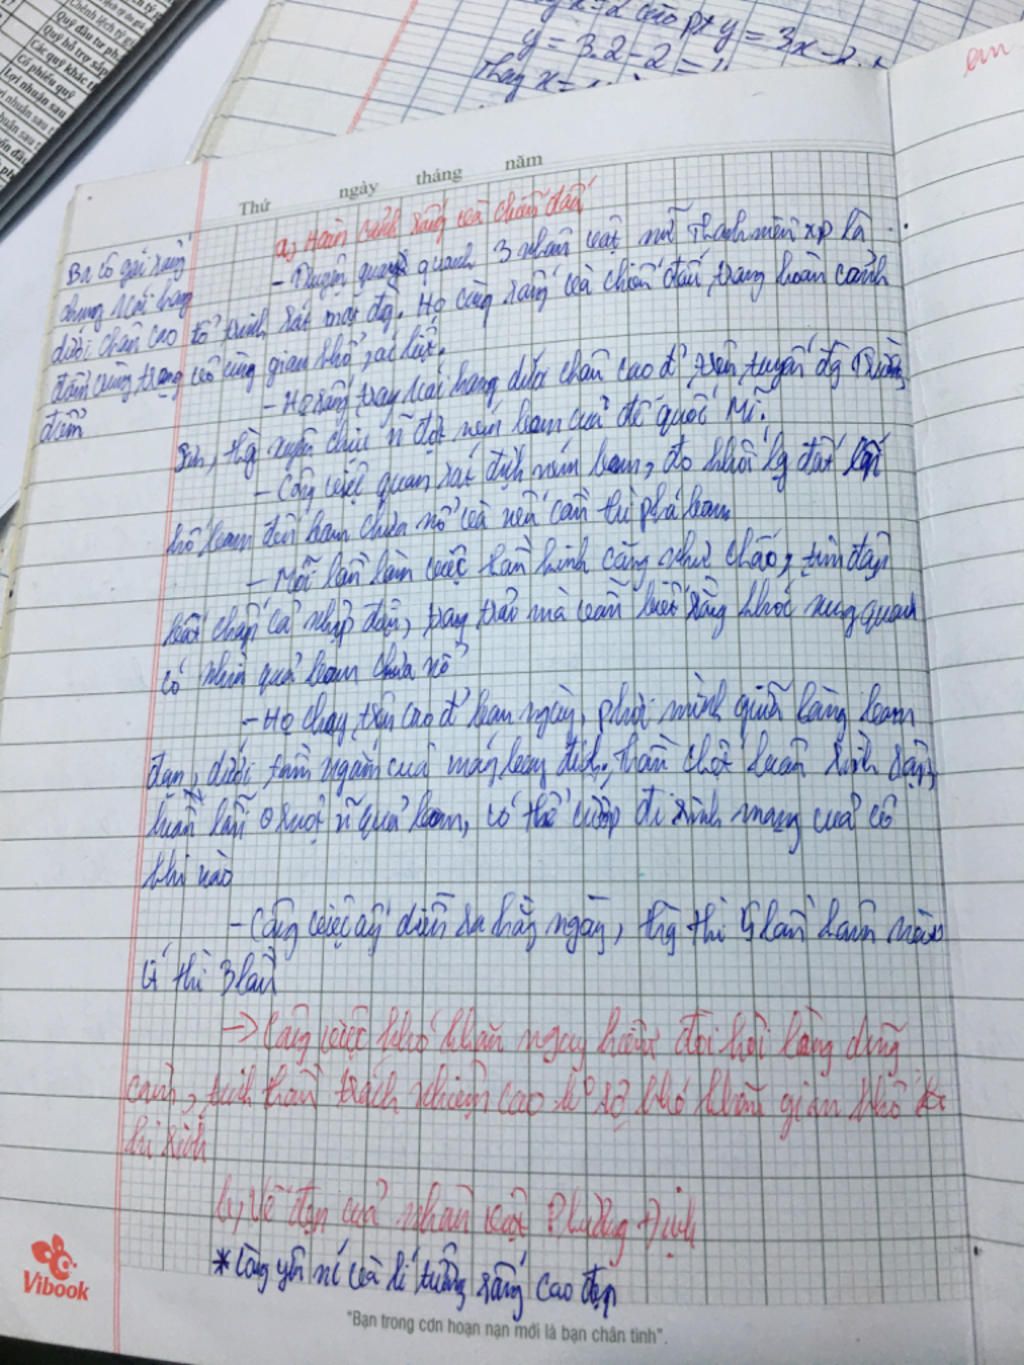 Chênh lệch tỷ g
Quỹ đầu tư ph
Quỹ hỗ trợ sắp
Các quỹ khác t
Cổ phiếu quỹ
Lợi nhuận sau
y = 3x - 2
y = 3.2 - 2 =
Thay x =
em
Thứ ngày tháng năm
a, Hoàn cảnh sống và chiến đấu
Ba cô gái sống
chung 1 cái hang
dưới chân cao
điểm
- Truyện quay quanh 3 nhân vật nữ Thanh niên xp là
tổ trinh sát mặt đg. Họ cùng sống và chiến đấu trong hoàn cảnh
vô cùng gian khổ, ác liệt.
- Họ sống trong 1 cái hang dưới chân cao đ' trên tuyến đg Trường
Sơn, thg xuyên chịu n đợt ném bom của đế quốc Mĩ.
- Công việc quan sát địch ném bom, đo khối lg đất lấp
hố bom đếm bom chưa nổ và nếu cần thì phá bom
- Mỗi lần làm việc thần kinh căng như chão, tim đập
bất chấp cả nhịp điệu, mà vẫn biết rằng khắc xung quanh
có nhiều quả bom chưa nổ
- Họ chạy trên cao đ' ban ngày, phơi mình giữa làng bom
đạn, dưới tầm ngắm của máy bay địch. Thần chết luôn rình rập,
luôn lẩn ở ruột n quả bom, có thể cướp đi sinh mạng của cô
khi nào
- Công việc ấy diễn ra hằng ngày, thg thì 5 lần hôm nào
ít thì 3 lần
-> Công việc khó khăn nguy hiểm đòi hỏi lòng dũng
cảm, tinh thần trách nhiệm cao k sợ khó khăn gian khổ
hi sinh
b, Vẻ đẹp của nhân vật Phương Định
* Lòng yêu nc và lí tưởng sống cao đẹp
Vibook
"Bạn trong cơn hoạn nạn mới là bạn chân tình".